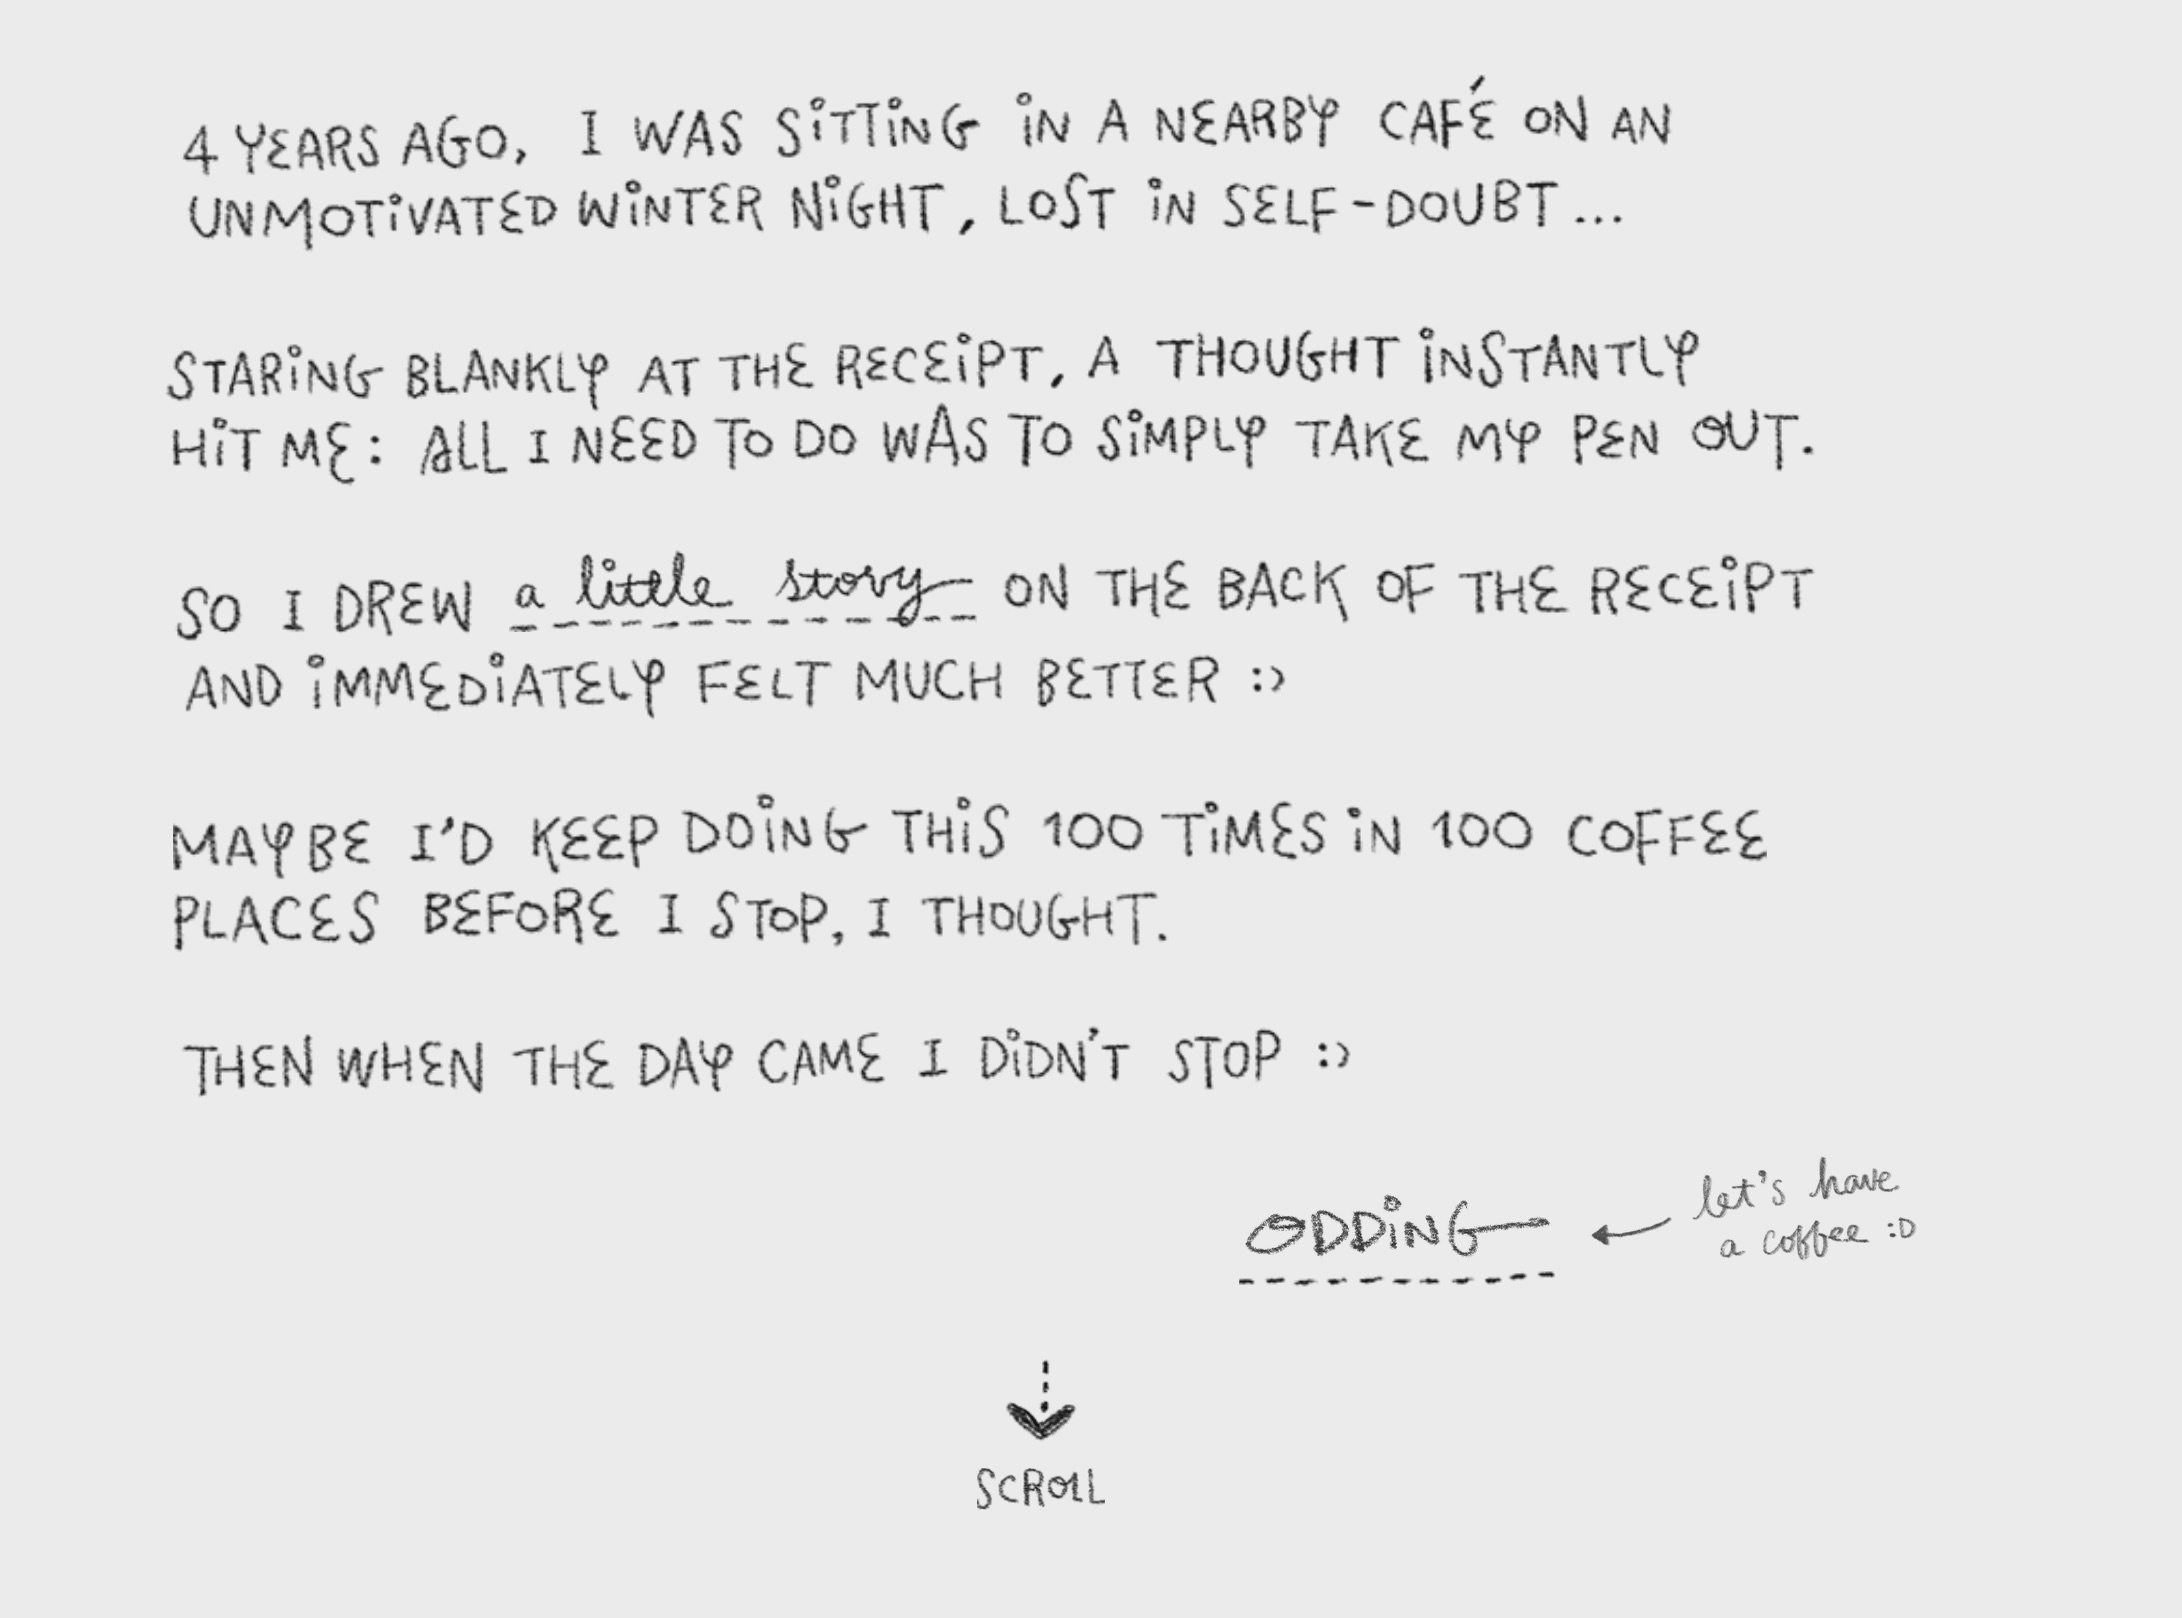 4 YEARS AGO, I WAS SITTING IN A NEARBY CAFÉ ON AN
UNMOTIVATED WINTER NIGHT, LOST IN SELF-DOUBT...
STARING BLANKLY AT THE RECEIPT, A THOUGHT INSTANTLY
HIT ME: ALL I NEED TO DO WAS TO SIMPLY TAKE MY PEN OUT.
SO I DREW a little story ON THE BACK OF THE RECEIPT
AND IMMEDIATELY FELT MUCH BETTER :)
MAYBE I'D KEEP DOING THIS 100 TIMES IN 100 COFFEE
PLACES BEFORE I STOP, I THOUGHT.
THEN WHEN THE DAY CAME I DIDN'T STOP :)
ODDING
let's have
a coffee :D
SCROLL